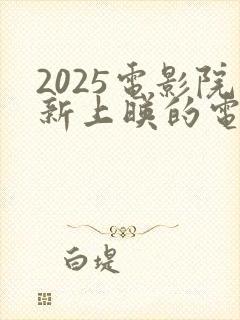 2025電影院
新上映的電
白堤